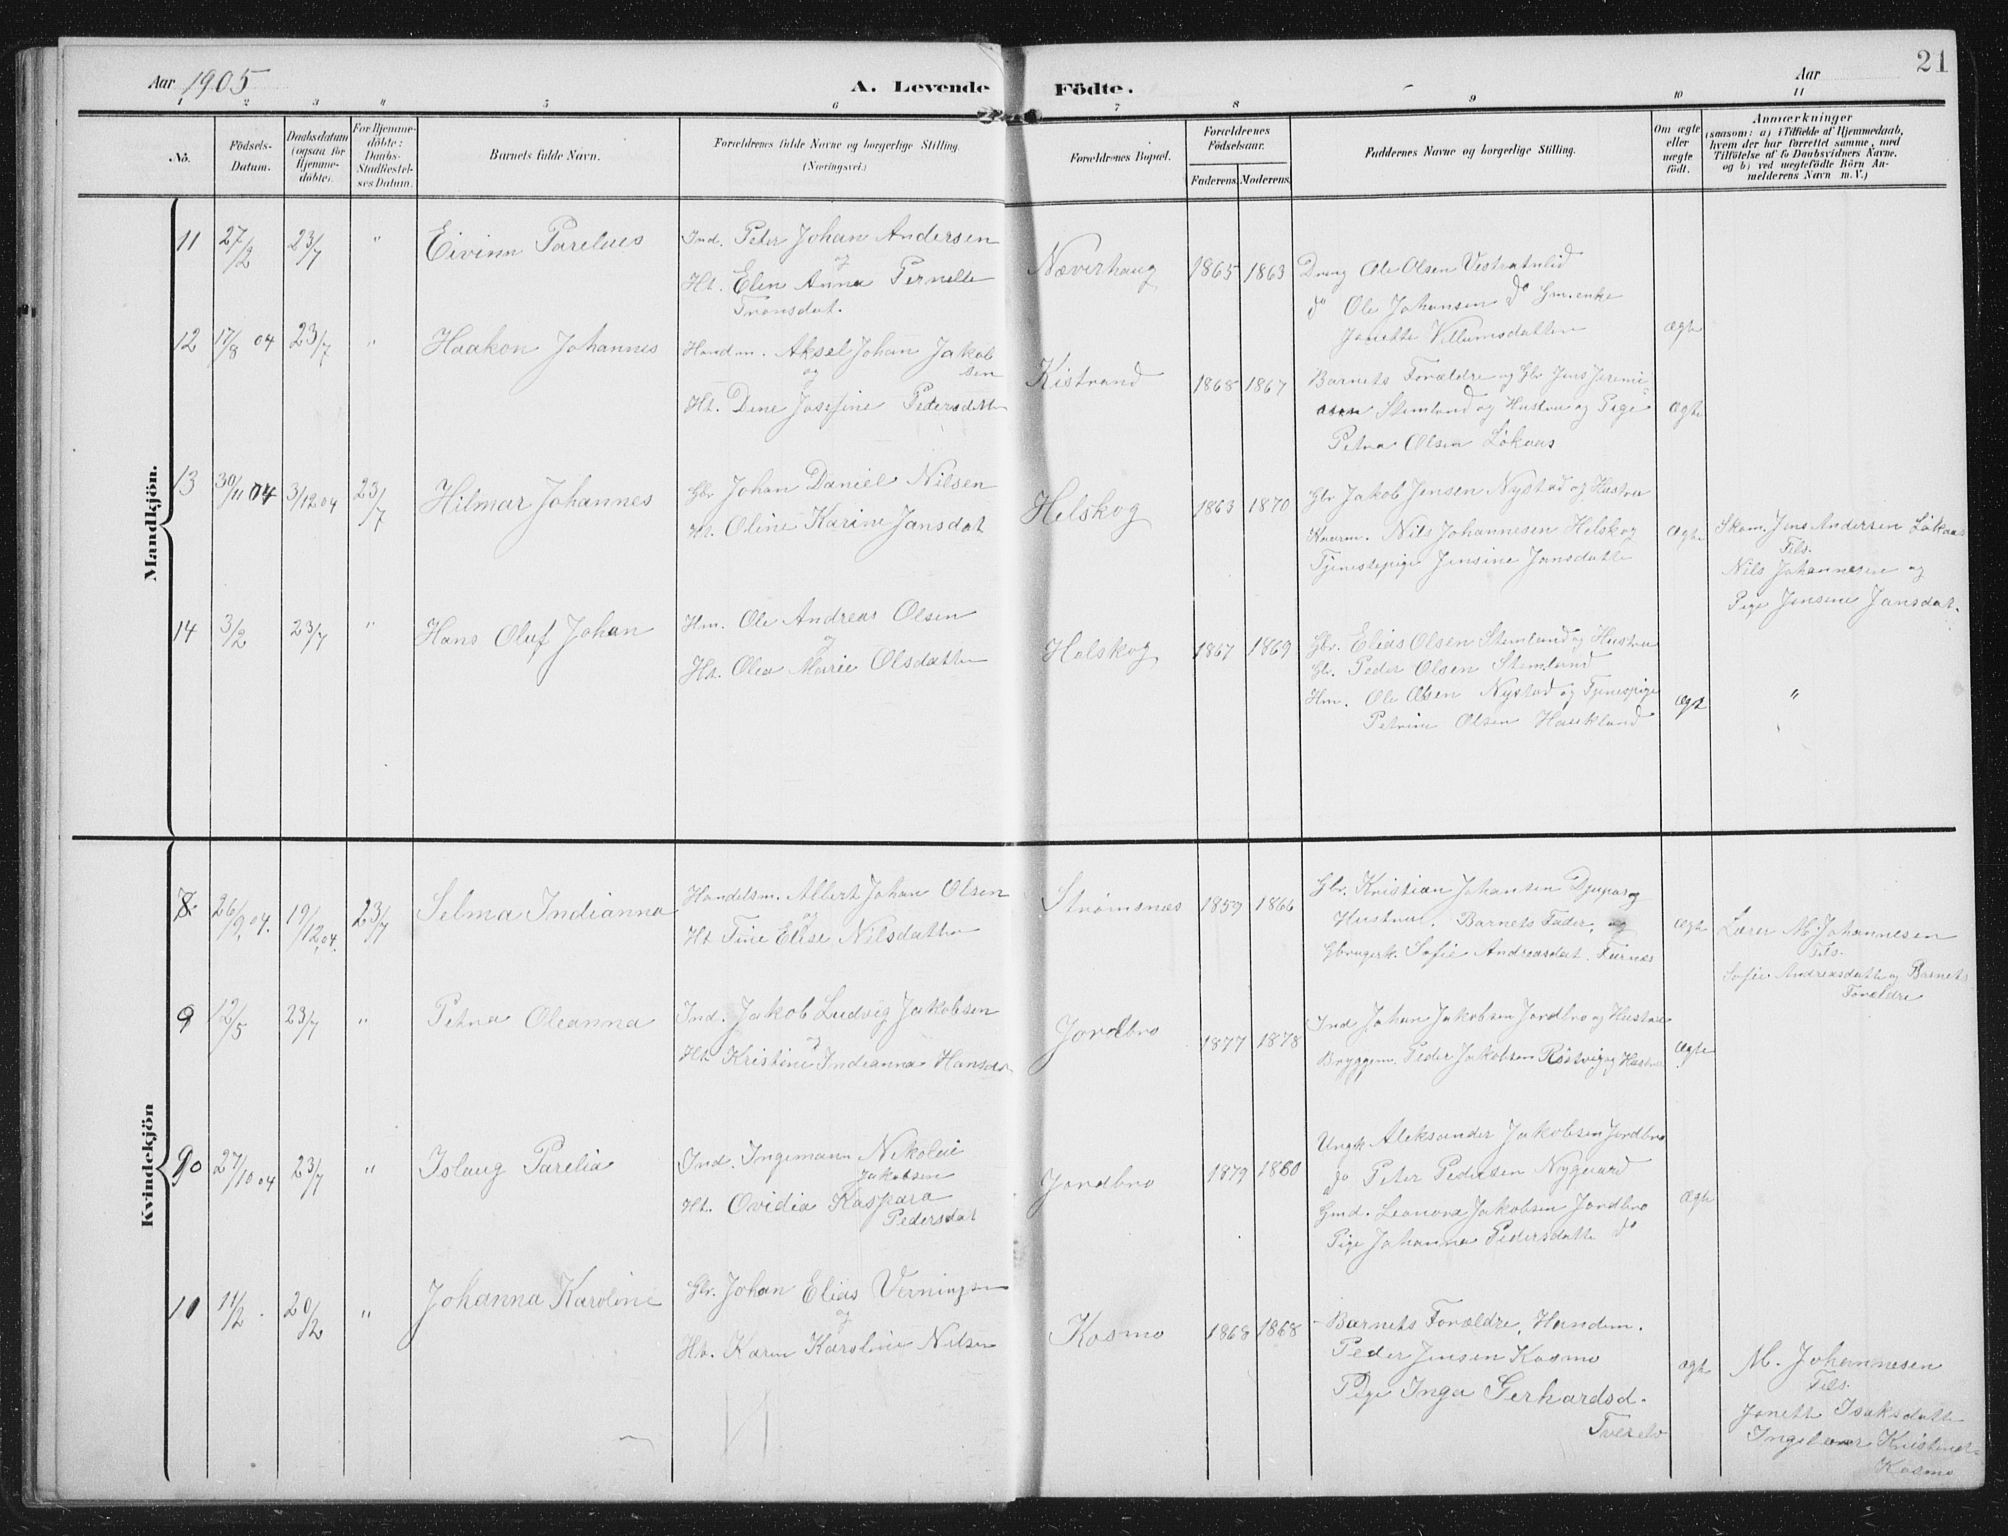 Aar 1905
A. Levende Födte.
Aar
21
1 2 3 4 5 6 7 8 9 10 11
No.
Födsels-
Datum.
Daabsdatum
(ogsaa for
Hjemme-
döbte).
For Hjemme-
döbte:
Daabs-
Stadfæstel-
ses Datum.
Barnets fulde Navn.
Forældrenes fulde Navne og borgerlige Stilling.
(Næringsvei.)
Forældrenes Bopæl.
Forældrenes
Födselsaar.
Faderens. Moderens.
Faddernes Navne og borgerlige Stilling.
Om ægte
eller
uægte
födt.
Anmærkninger
(saasom: a) i Tilfælde af Hjemmedaab,
hvem der har forrettet samme, med
Tilföielse af to Daabsvidners Navne.
og b) ved uægtefödte Börn An-
melderens Navn m. V.)
Mandkjön.
11 27/2 23/7 " Eivinn Parelues
Ind. Peter Johan Andersen
og
Ht. Elen Anna Pernelle
Tronsdat.
Næverhaug 1865 1863
Dreng Ole Olsen Vestvatnlid
do Ole Johansen do Gm.enke
Jonette Villumsdatter
ægte
12 17/8 04 23/7 " Haakon Johannes
Handm. Aksel Johan Jakob
sen
og
Ht. Dine Josefine Pedersdatter
Kistrand 1868 1867
Barnets Forældre og Gbr Jens Jeremi-
Stemland og Hustru og Pige
Petra Olsen Løkaas
ægte
13 30/11 04 3/12 04 23/7 Hilmar Johannes
Gbr Johan Daniel Nilsen
Ht. Oline Karine Jansdat
Helskog 1863 1870
Gbr Jakob Jensen Nystad og Hustru
Kaarm. Nils Johannesen Helskog
Tjenestepige Jensine Jansdatte
ægte
Skom. Jens Andersen Løkaas
Tils.
Nils Johannesen og
Pige Jensine Jansdat.
14 3/2 23/7 " Hans Oluf Johan
Hm. Ole Andreas Olsen
og
Ht. Olea Marie Olsdatter
Helskog 1867 1869
Gbr. Elias Olsen Stemland og Hustru
Gb. Peder Olsen Stemland
Hm. Ole Olsen Nystad og Tjenespige
Petrine Olsen Haukland
ægt
"
Kvindekjön
8 26/9 04. 19/12 04. 23/7 Selma Indianna
Handelsm. Albert Johan Olsen
og
Ht Tine Elise Nilsdatter
Strømsnes 1859 1866
Gbr. Kristian Johansen Djupos og
Hustru. Barnets Fader, og
Gbrugerk. Sofie Andreasdat. Furnes
ægt
Lærer M. Johannesen
Tils.
Sofie Andreasdatte og Barnets
Forældre
9 12/5 23/7 " Petra Oleanna
Ind. Jakob Ludvig Jakobsen
og
Ht. Kristine Indianna Hansdr
Jordbro 1877 1878
Ind Johan Jakobsen Jordbro og Hustru
Bryggem. Peder Jakobsen Røsvig og Hustru
ægte
10 27/10 04 23/7 " Islaug Parelia
Ind. Ingemann Nikolai
Jakobsen
Ht. Ovidia Kaspara
Pedersdat
Jordbro 1879 1880
Ungk. Aleksander Jakobsen Jordbro
do Peter Pedersen Nygaard
Gmd. Leonora Jakobsen Jordbro
Pige Johanna Pedersdatte do
ægte
10 11/2 . 20/2 " Johanna Karoline
Gbr. Johan Elias Verningsen
og
Ht. Karen Karoline Nilsen
Kosmo 1868 1868
Barnets Forældre, Handm.
Peder Jensen Kosmo
Pige Inga Gerhardsd.
Tverelv
ægt
M. Johannesen
Tils.
Jonette Isaksdatte
Kosmo